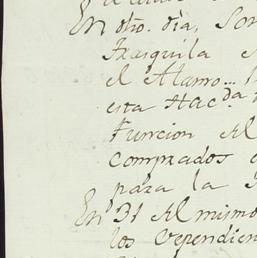 En otro. dia, Son
Frasquila
el Alamo...
esta Hac.da
Funcion del
comprados
para la
En 31 del mismo
los Dependien